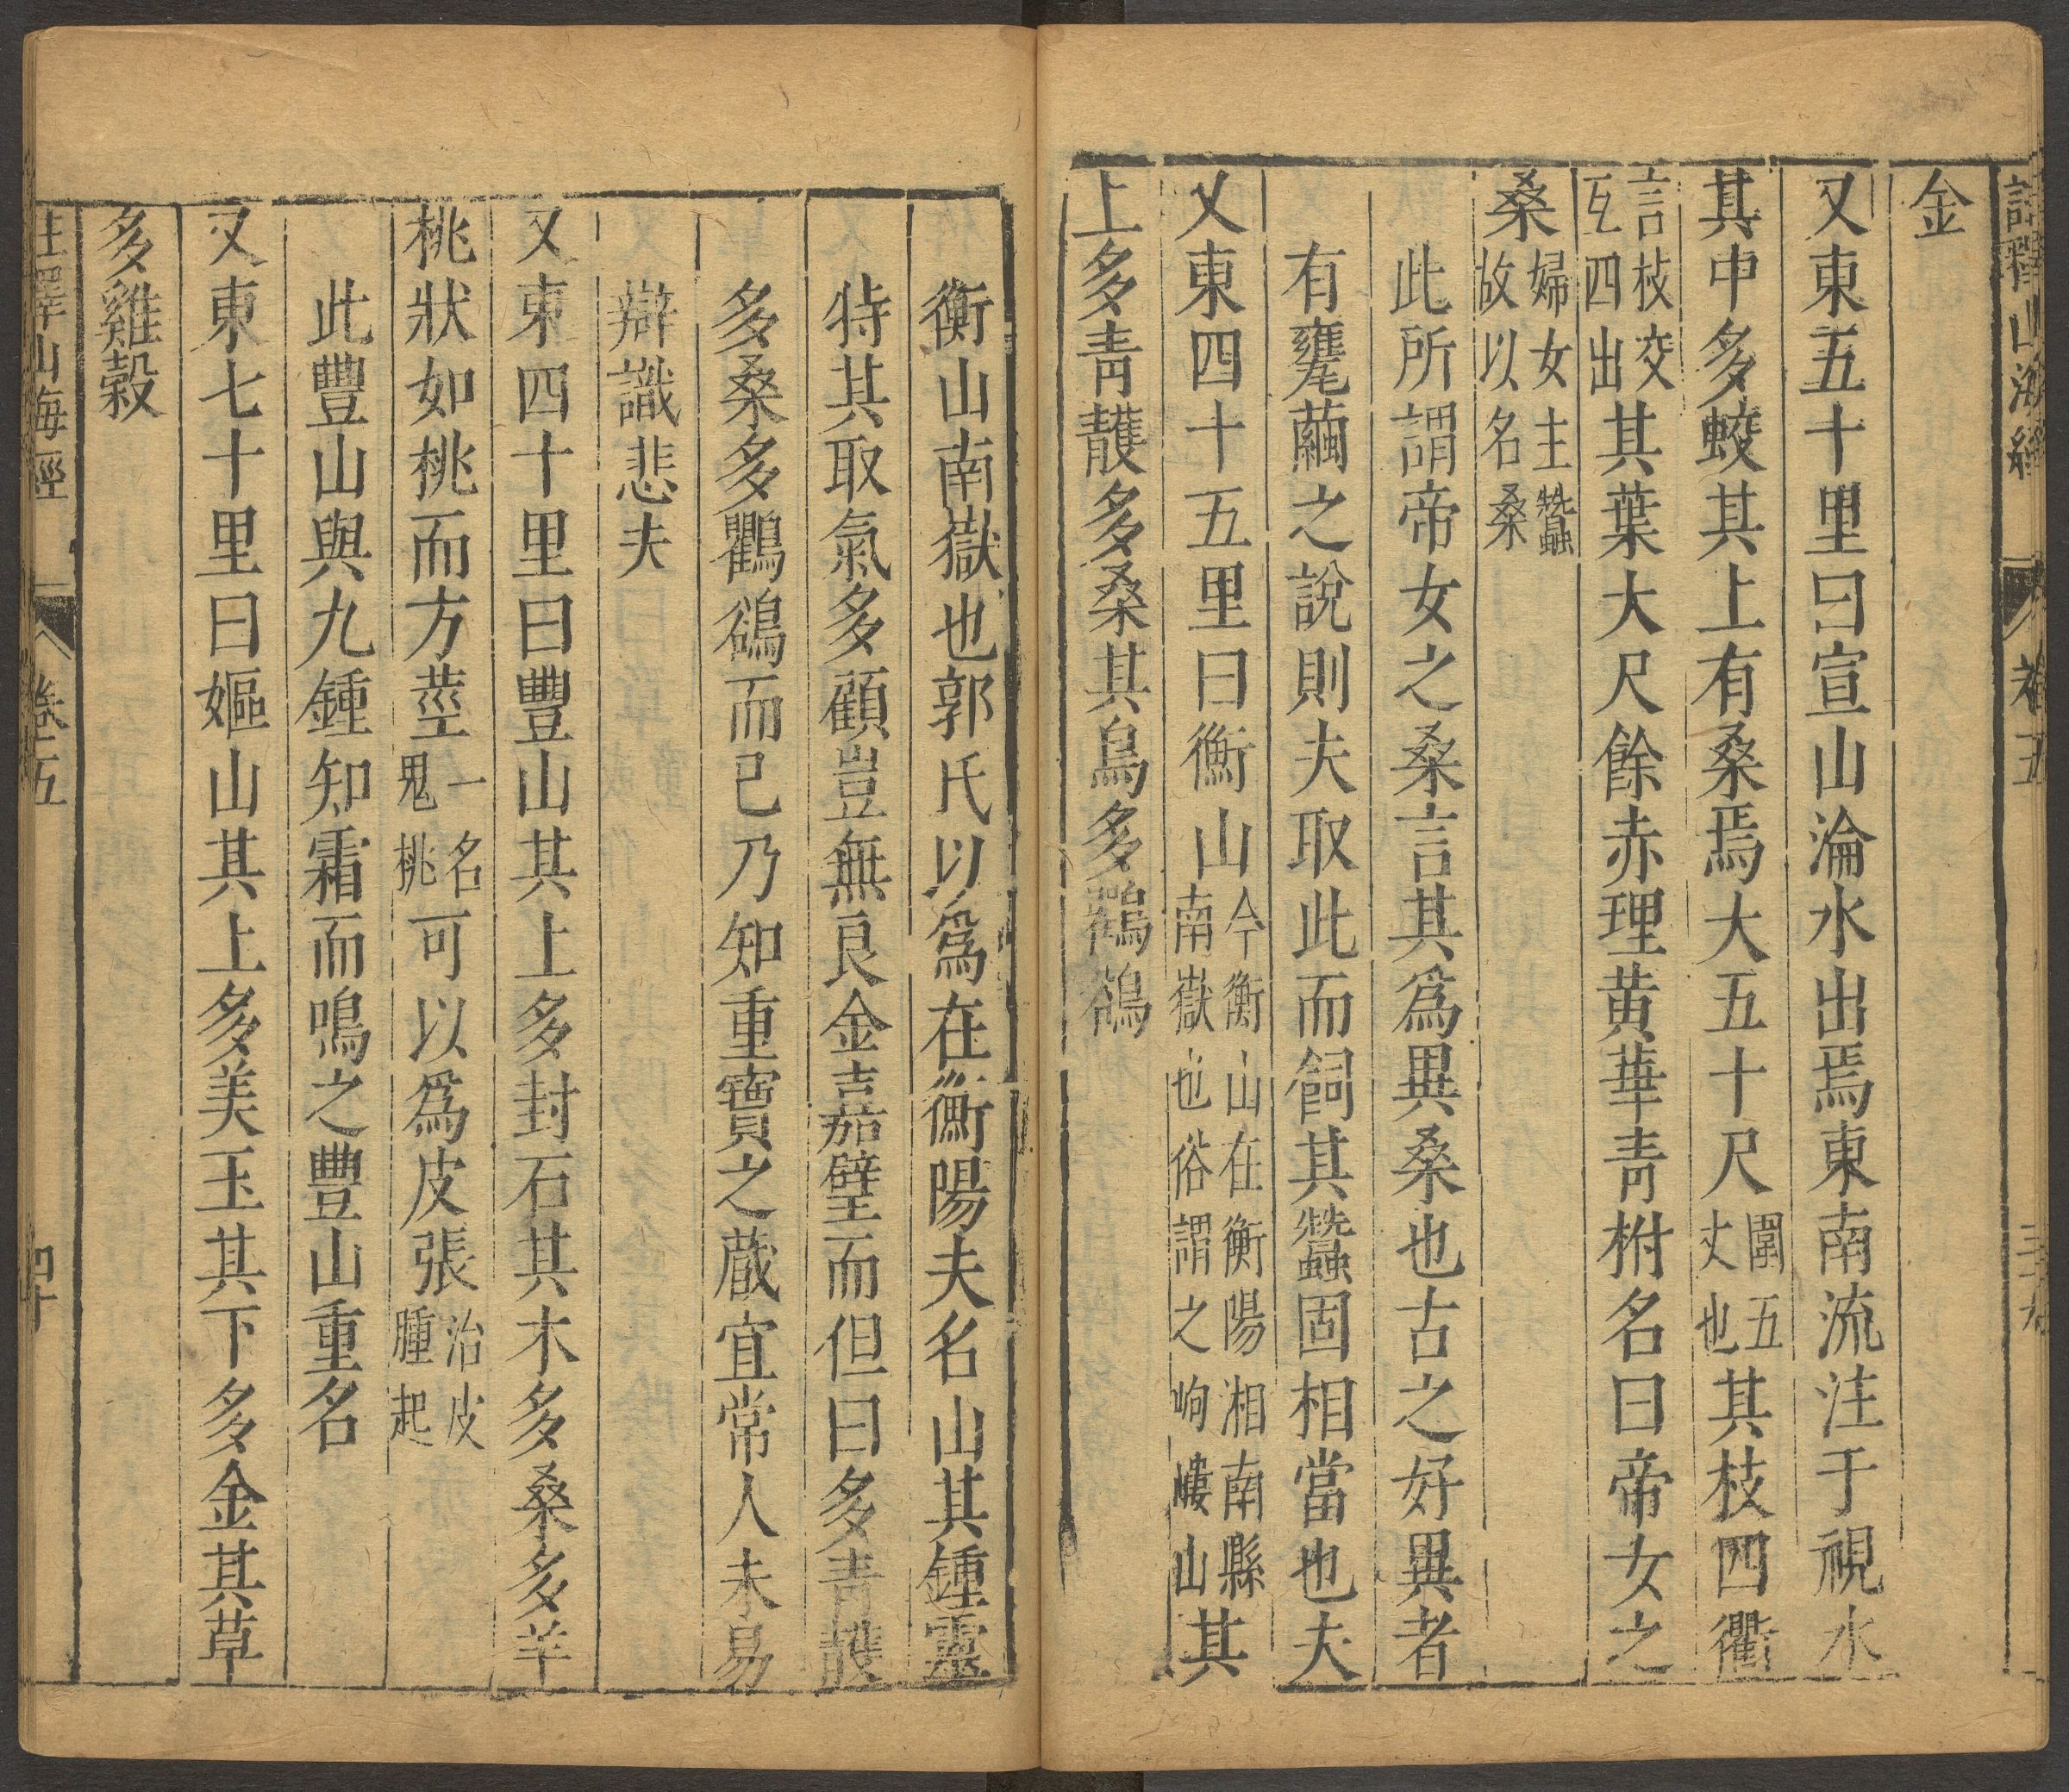 金
又東五十里曰宣山淪水出焉東南流注于視水
其中多蛟其上有桑焉大五十尺圍五丈也其枝四衢
言枝交互四出其葉大尺餘赤理黃華青柎名曰帝女之
桑婦女主蠶故以名桑
此所謂帝女之桑言其爲異桑也古之好異者
有甕繭之說則夫取此而飼其蠶固相當也夫
又東四十五里曰衡山今衡山在衡陽湘南縣南嶽也俗謂之岣嶁山其
上多青雘多桑其鳥多鸜鵒
衡山南嶽也郭氏以爲在衡陽夫名山其鍾靈
特其取氣多顧豈無良金嘉璧而但曰多青雘
多桑多鸜鵒而已乃知重寶之蔵宜常人未易
辯識悲夫
又東四十里曰豐山其上多封石其木多桑多羊
桃狀如桃而方莖一名鬼桃可以爲皮張治皮腫起
此豐山與九鍾知霜而鳴之豐山重名
又東七十里曰嫗山其上多美玉其下多金其草
多雞穀
注釋山海經 卷五 四十